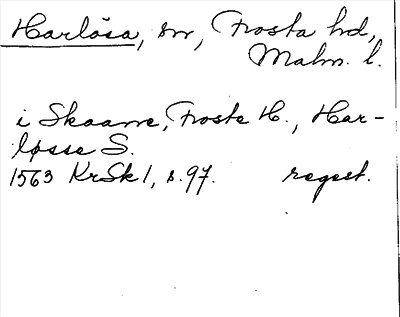 Harlösa, sn, Frosta hd,
Malm. l.
i Skaane, Froste H., Har-
løsse S.
1563 KrSk 1, s. 97. regest.